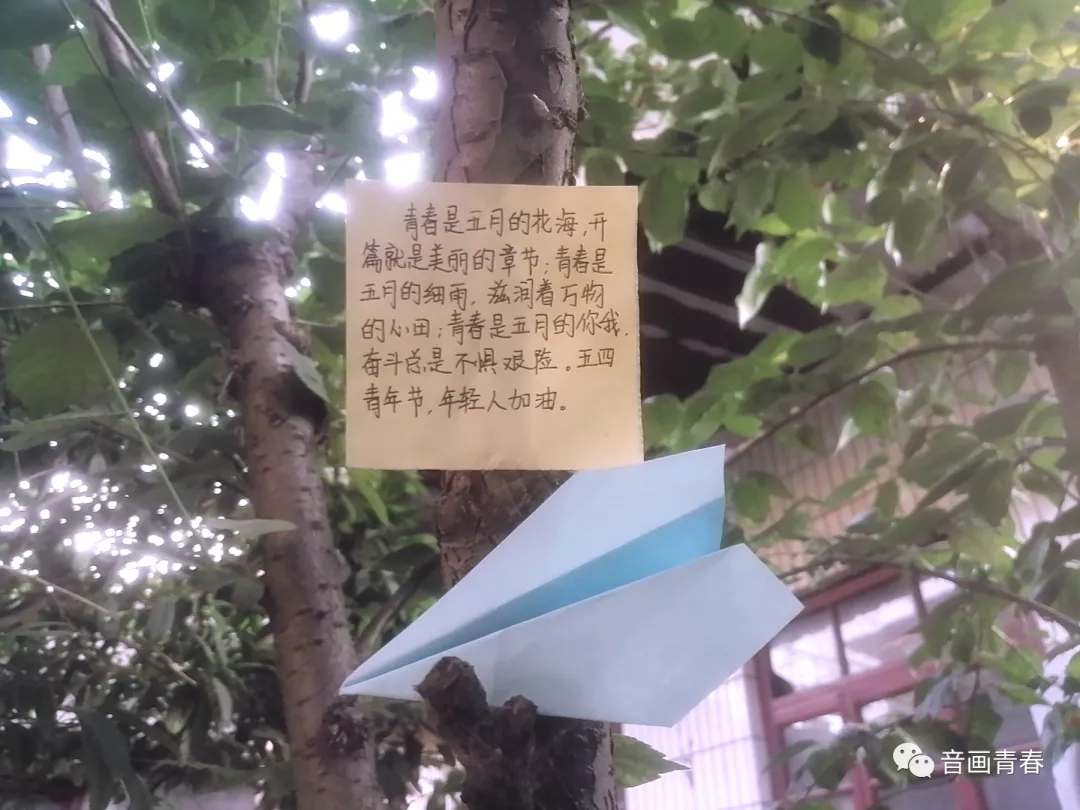 青春是五月的花海,开
篇就是美丽的章节;青春是
五月的细雨,滋润着万物
的心田;青春是五月的你我,
奋斗总是不惧艰险。五四
青年节,年轻人加油。
音画青春